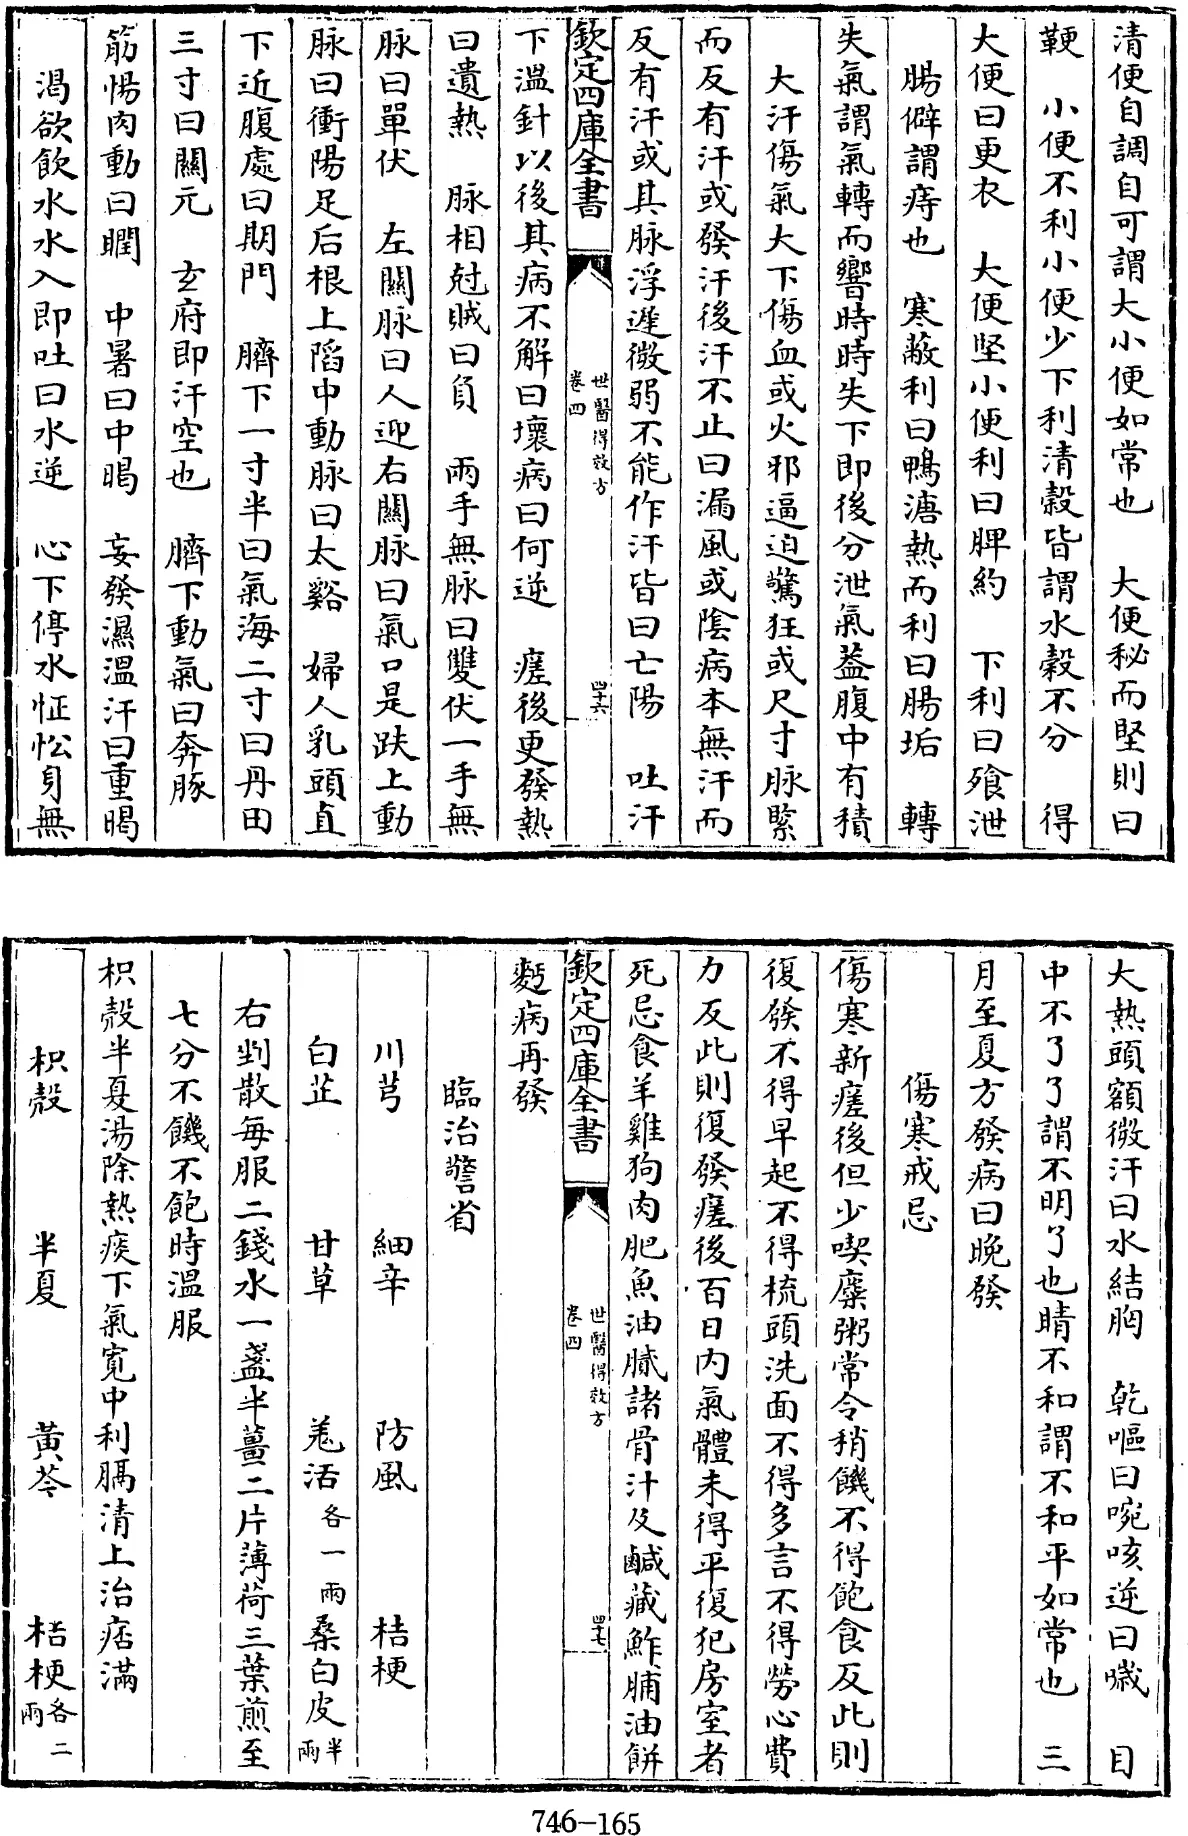 清便自調自可謂大小便如常也　大便秘而堅則曰
鞕　小便不利小便少下利清穀皆謂水穀不分　得
大便曰更衣　大便堅小便利曰脾約　下利曰飱泄
腸僻謂痔也　寒蔽利曰鴨溏熱而利曰腸垢　轉
失氣謂氣轉而響時時失下即後分泄氣葢腹中有積
大汗傷氣大下傷血或火邪逼迫驚狂或尺寸脉緊
而反有汗或發汗後汗不止曰漏風或陰病本無汗而
反有汗或其脉浮遲微弱不能作汗皆曰亡陽　吐汗
欽定四庫全書　世醫得效方卷四　四十六
下溫針以後其病不解曰壞病曰何逆　瘥後更發熱
曰遺熱　脉相尅賊曰負　兩手無脉曰雙伏一手無
脉曰單伏　左關脉曰人迎右關脉曰氣口是趺上動
脉曰衝陽足后根上陷中動脉曰太谿　婦人乳頭直
下近腹處曰期門　臍下一寸半曰氣海二寸曰丹田
三寸曰關元　玄府即汗空也　臍下動氣曰奔豚
筋惕肉動曰瞤　中暑曰中暍　妄發濕溫汗曰重暍
渴欲飲水水入即吐曰水逆　心下停水怔忪身無
大熱頭額微汗曰水結胸　乾嘔曰啘咳逆曰噦　目
中不了了謂不明了也睛不和謂不和平如常也　三
月至夏方發病曰晚發
傷寒戒忌
傷寒新瘥後但少喫糜粥常令稍饑不得飽食反此則
復發不得早起不得梳頭洗面不得多言不得勞心費
力反此則復發瘥後百日内氣體未得平復犯房室者
死忌食羊雞狗肉肥魚油膩諸骨汁及鹹藏鮓脯油餅
欽定四庫全書　世醫得效方卷四　四十七
麪病再發
臨治警省
川芎　細辛　防風　桔梗
白芷　甘草　羗活各一兩　桑白皮半兩
右剉散每服二錢水一盞半薑二片薄荷三葉煎至
七分不饑不飽時溫服
枳殼半夏湯除熱痰下氣寛中利膈清上治痞滿
枳殼　半夏　黃芩　桔梗各二兩
746-165